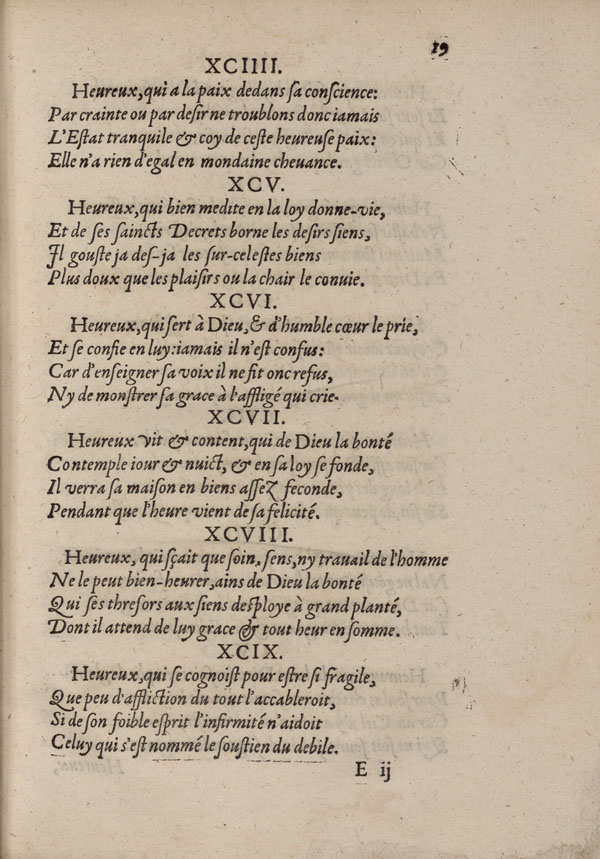 19
XCIIII.
Heureux, qui a la paix dedans sa conscience:
Par crainte ou par desir ne troublons donc iamais
L'Estat tranquile & coy de ceste heureuse paix:
Elle n'a rien d'egal en mondaine cheuance.
XCV.
Heureux, qui bien medite en la loy donne-vie,
Et de ses saincts Decrets borne les desirs siens,
Il gouste ja des-ja les sur-celestes biens
Plus doux que les plaisirs ou la chair le conuie.
XCVI.
Heureux, qui sert à Dieu, & d'humble cœur le prie,
Et se confie en luy: iamais il n'est confus:
Car d'enseigner sa voix il ne fit onc refus,
Ny de monstrer sa grace à l'affligé qui crie.
XCVII.
Heureux vit & content, qui de Dieu la bonté
Contemple iour & nuict, & en sa loy se fonde,
Il verra sa maison en biens assez feconde,
Pendant que l'heure vient de sa felicité.
XCVIII.
Heureux, qui sçait que soin, sens, ny trauail de l'homme
Ne le peut bien-heurer, ains de Dieu la bonté
Qui ses thresors aux siens desploye à grand planté,
Dont il attend de luy grace & tout heur en somme.
XCIX.
Heureux, qui se cognoist pour estre si fragile,
Que peu d'affliction du tout l'accableroit,
Si de son foible esprit l'infirmité n'aidoit
Celuy qui s'est nommé le soustien du debile.
E ij